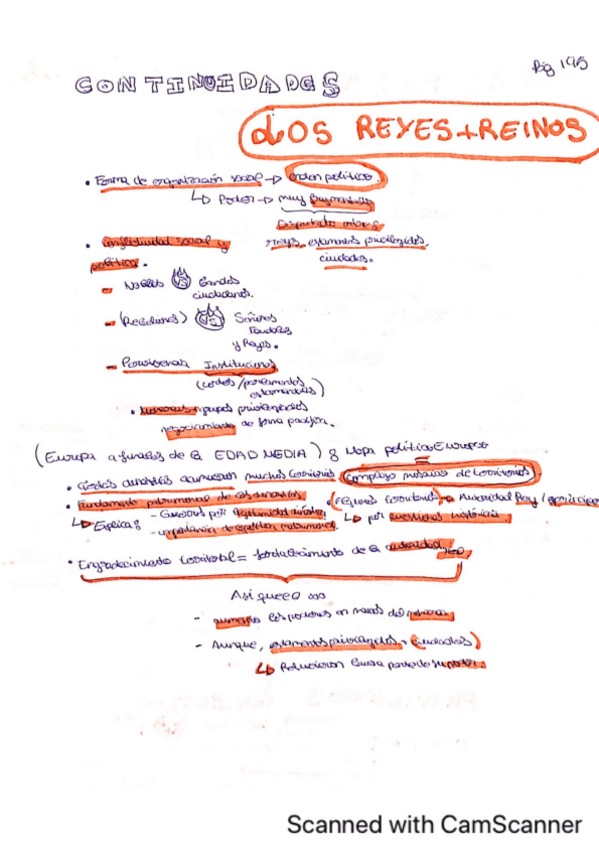 Pág 195
CONTINUIDADES
LOS REYES + REINOS
• Forma de organización social → orden político.
↳ Poder → muy fragmentado
Disputado entre
• Conflictividad social y
reyes, estamentos privilegiados,
política.
ciudades.
- Nobles VS Grandes
ciudadanos.
- (Rebeliones) VS Señores
feudales
y Reyes.
- Pervivencia Instituciones
(cortes/parlamentos
estamentales)
grupos privilegiados
negociaciones de forma pacífica.
(Europa a finales de la EDAD MEDIA) y Mapa político Europeo
• Grandes dinastías acumularon muchos territorios (complejo mosaico de territorios
• Fundamento patrimonial de las dinastías
• (algunos territorios) → Autoridad Rey
↳ Explica:
- Guerras por legitimidad dinástica
↳ por cuestiones históricas.
- importancia de la política matrimonial.
• Engrandecimiento territorial = fortalecimiento de la autoridad real.
Así que
- aumento los poderes en manos del
- Aunque, estamentos privilegiados + (ciudades)
↳ Mantuvieron buena parte de su poder.
Scanned with CamScanner